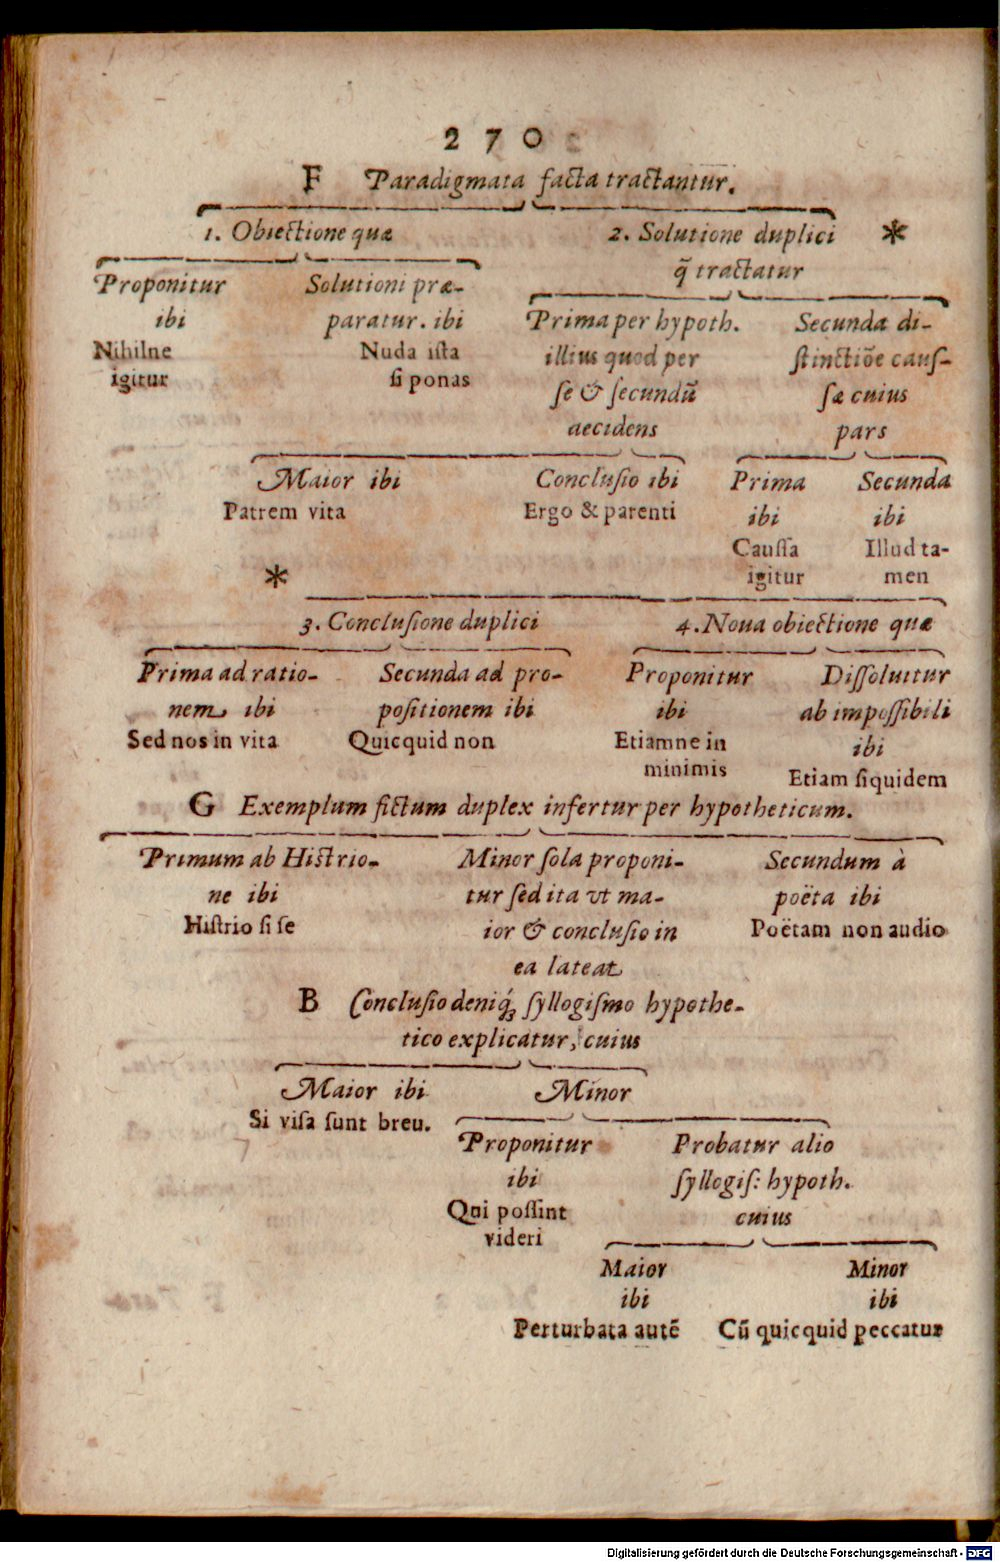 270
F Paradigmata facta tractantur.
1. Obiectione quæ
2. Solutione duplici *
q̃ tractatur
Proponitur
ibi
Nihilne
igitur
Solutioni præ-
paratur. ibi
Nuda ista
si ponas
Prima per hypoth.
illius quod per
se & secundũ
accidens
Secunda di-
stinctiõe caus-
sæ cuius
pars
Maior ibi
Patrem vita
Conclusio ibi
Ergo & parenti
Prima
ibi
Caussa
igitur
Secunda
ibi
Illud ta-
men
*
3. Conclusione duplici
4. Noua obiectione quæ
Prima ad ratio-
nem ibi
Sed nos in vita
Secunda ad pro-
positionem ibi
Quicquid non
Proponitur
ibi
Etiamne in
minimis
Dissoluitur
ab impossibili
ibi
Etiam siquidem
G Exemplum fictum duplex infertur per hypotheticum.
Primum ab Histrio-
ne ibi
Histrio si se
Minor sola proponi-
tur sed ita vt ma-
ior & conclusio in
ea lateat
Secundum à
poëta ibi
Poëtam non audio
B Conclusio deniq́; syllogismo hypothe-
tico explicatur, cuius
Maior ibi
Si visa sunt breu.
Minor
Proponitur
ibi
Qui possint
videri
Probatur alio
syllogis: hypoth.
cuius
Maior
ibi
Perturbata autẽ
Minor
ibi
Cũ quicquid peccatur
Digitalisierung gefördert durch die Deutsche Forschungsgemeinschaft - DFG